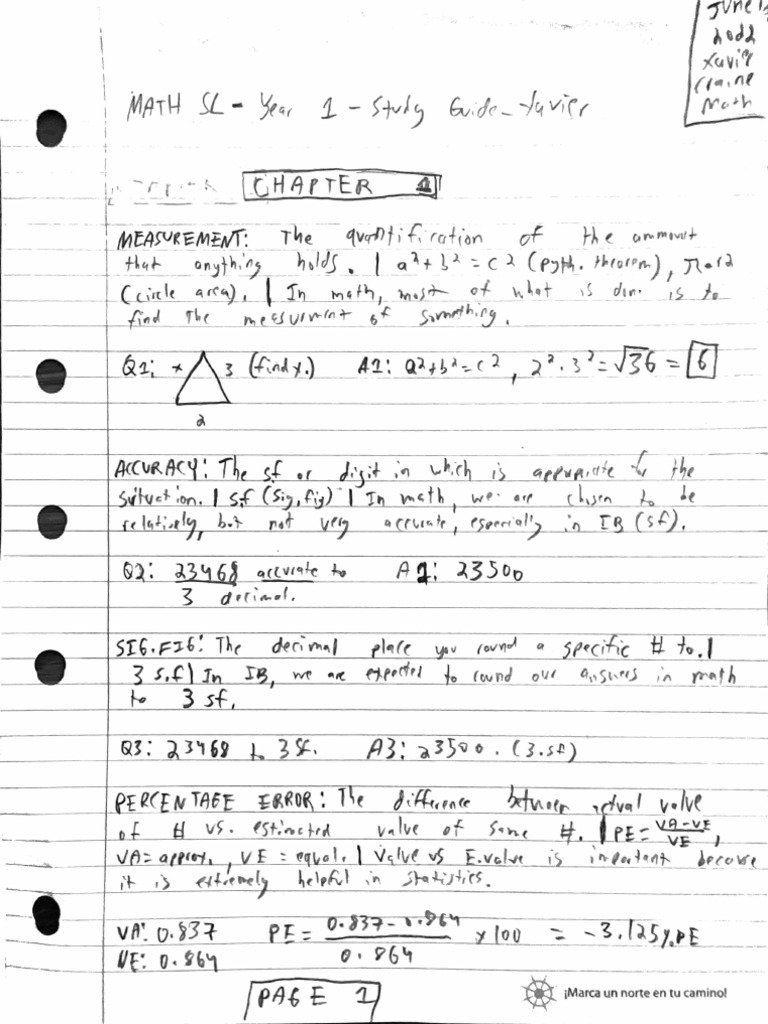 June 1
2022
Xavier
Craine
Math
MATH SL - Year 1 - Study Guide - Xavier
CHAPTER 1
MEASUREMENT: The quantification of the ammount
that anything holds. | a²+b²=c² (pyth. theorem), π·r2
(circle area). | In math, most of what is done is to
find the measurment of something.
Q1: x 3 (find x.) A1: a²+b²=c², 2²·3²=√36 = 6
2
ACCURACY: The sf or digit in which is appropriate for the
situation. | s.f (sig, fig) | In math, we are chosen to be
relatively, but not very accurate, especially in IB (sf).
Q2: 23468 accurate to A2: 23500
3 decimal.
SIG.FIG: The decimal place you round a specific # to. |
3 s.f | In IB, we are expected to round our answers in math
to 3 sf.
Q3: 23468 to 3 sf. A3: 23500. (3.sf)
PERCENTAGE ERROR: The difference between actual value
of # vs. estimated value of same #. | PE = VA-VE/VE,
VA = approx., VE = equal. | Value vs E.value is important because
it is extremely helpful in statistics.
VA: 0.837 PE = 0.837 - 0.864 / 0.864 x100 = -3.125% PE
VE: 0.864
PAGE 1
¡Marca un norte en tu camino!